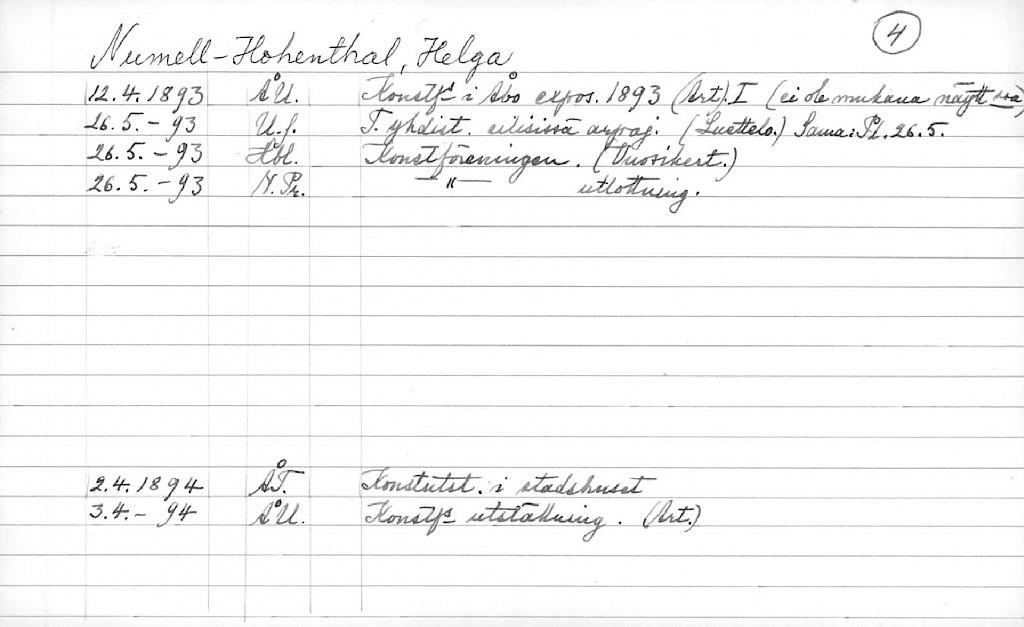 4
Numell-Hohenthal, Helga
12.4.1893 ÅU. Konstfs i Åbo expos. 1893 (Art). I (ei ole mukana näytt:ssä)
26.5.-93 U.S. T. yhdist. eilisissä arpaj. (Luettelo.) Sama: Pl. 26.5.
26.5.-93 Hbl. Konstföreningen. (Vuosikert.)
26.5.-93 N.Pr. —"— utlottning.
2.4.1894 ÅT. Konstutst. i stadshuset
3.4.-94 ÅU. Konstfs utställning. (Art.)